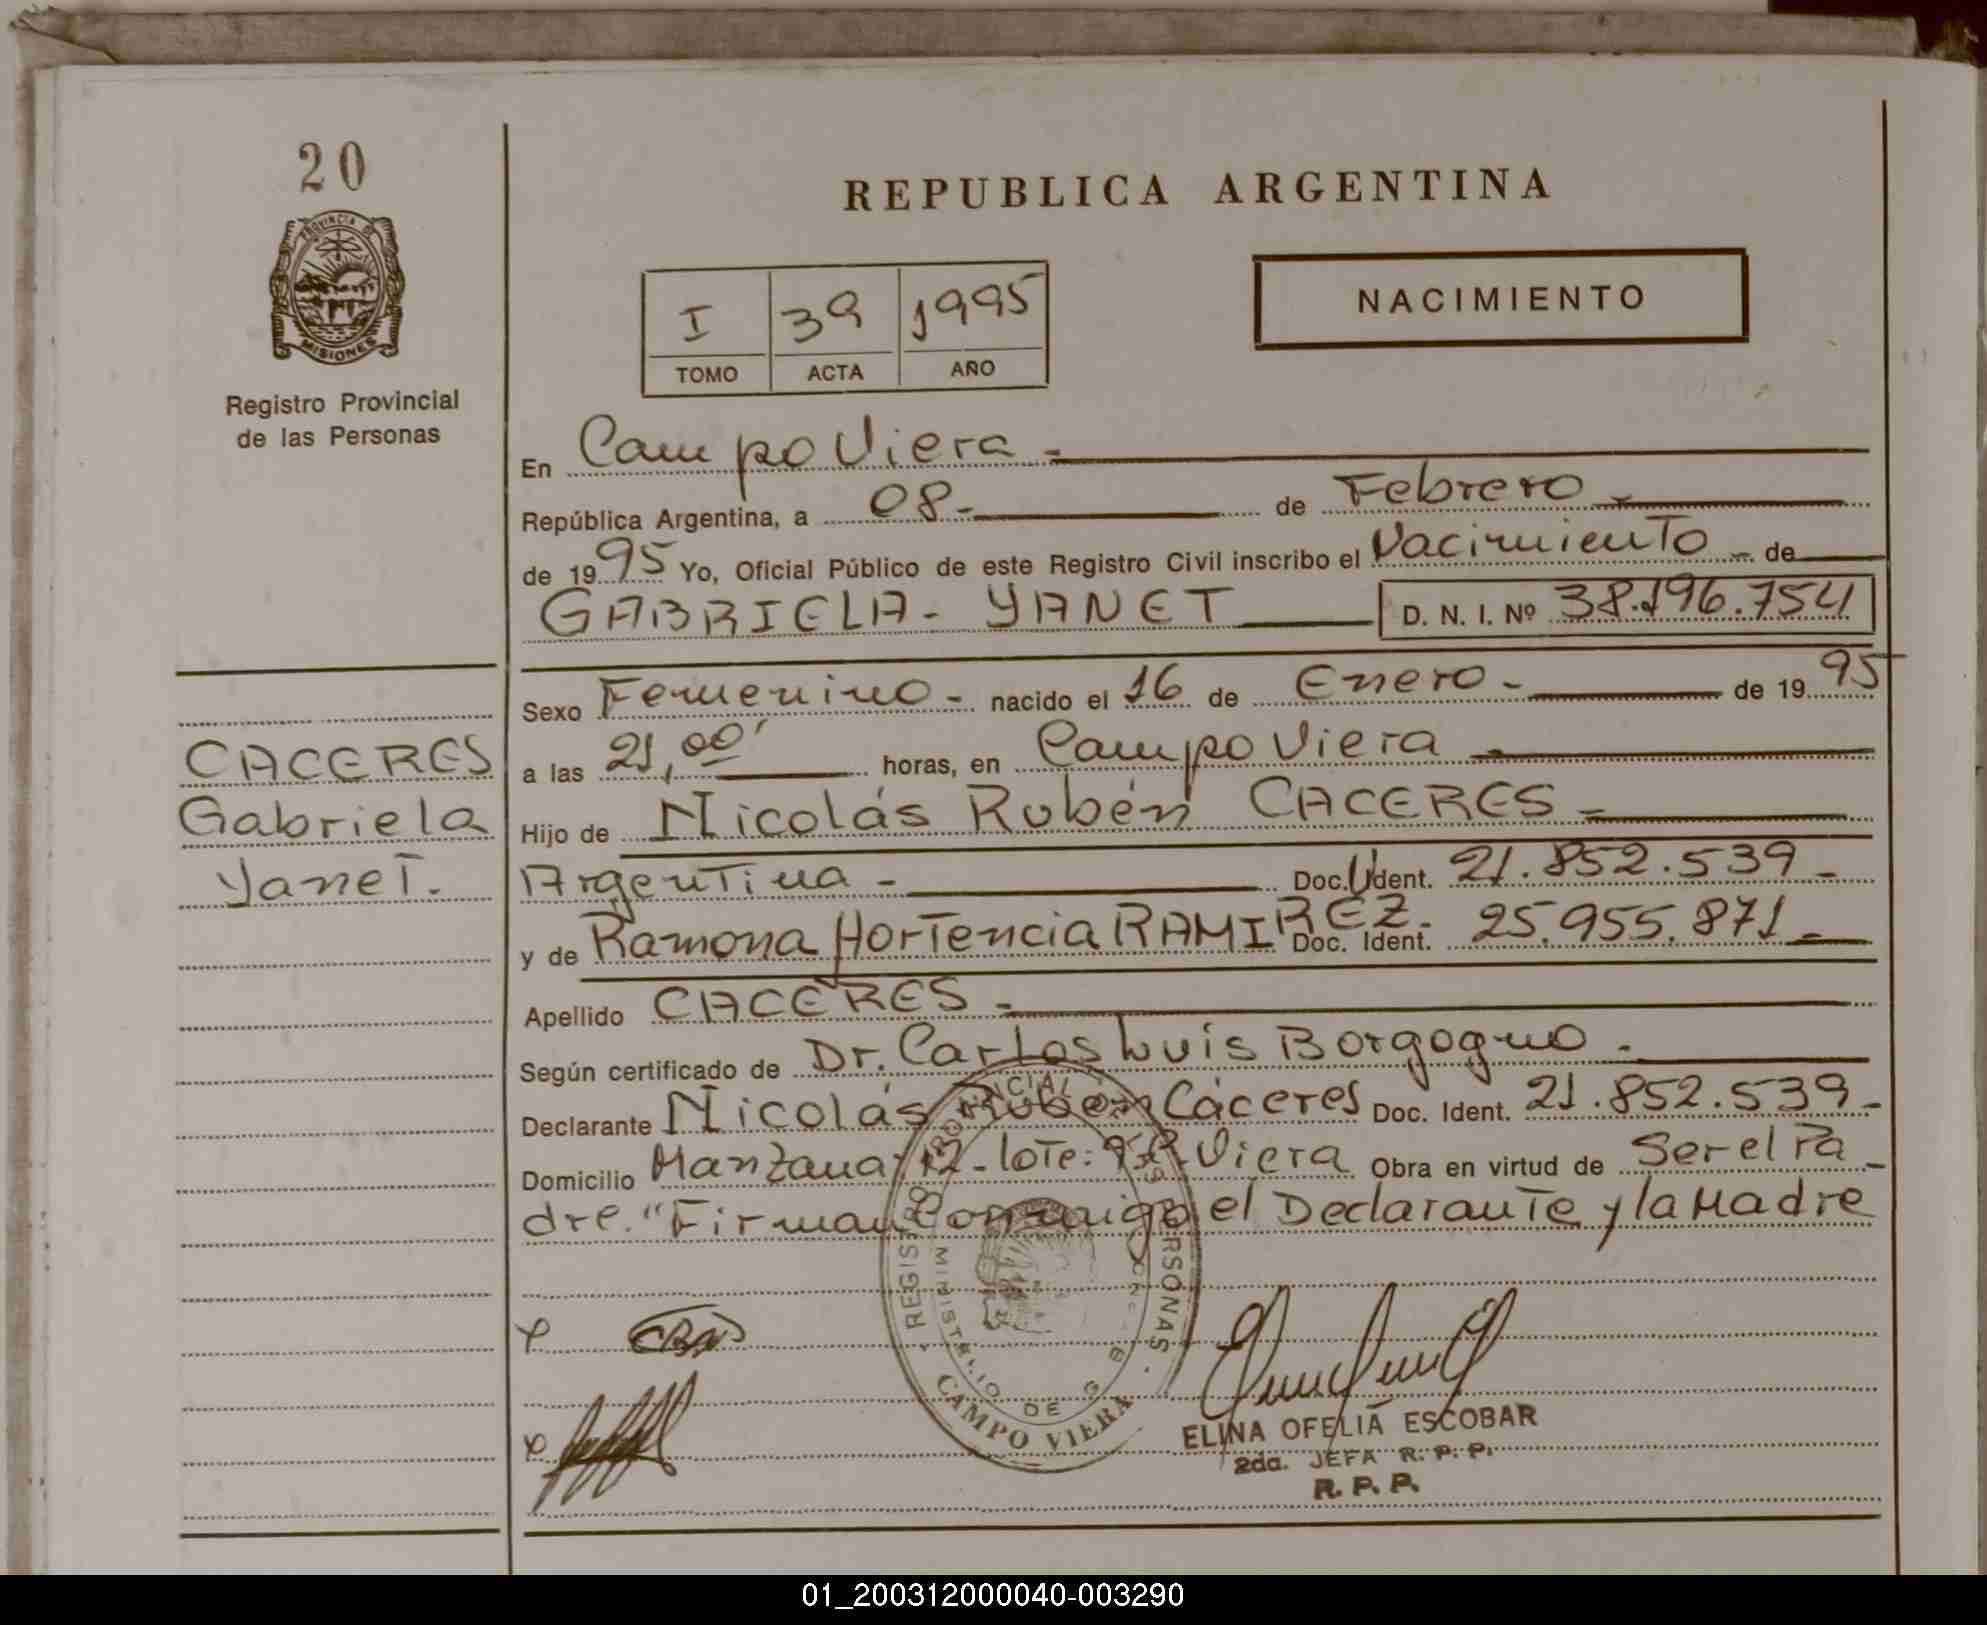 20
PROVINCIA DE
MISIONES
Registro Provincial
de las Personas
REPUBLICA ARGENTINA
I 39 1995
TOMO ACTA AÑO
NACIMIENTO
En Campo Viera -
República Argentina, a 08- de Febrero -
de 1995 Yo, Oficial Público de este Registro Civil inscribo el Nacimiento - de
GABRIELA - YANET D. N. I. Nº 38.196.754
Sexo Femenino - nacido el 16 de Enero - de 1995
a las 21,00' horas, en Campo Viera -
Hijo de Nicolás Rubén CACERES -
Argentina - Doc. Ident. 21.852.539 -
y de Ramona Hortencia RAMIREZ - Doc. Ident. 25.955.871 -
Apellido CACERES -
Según certificado de Dr. Carlos Luis Borgogno -
Declarante Nicolás Rubén Cáceres Doc. Ident. 21.852.539 -
Domicilio Manzana: 12 - lote: Viera Obra en virtud de Ser el Pa -
dre. "Firman Conmigo el Declarante y la Madre
CACERES
Gabriela
Yanet.
REGISTRO PROVINCIAL DE LAS PERSONAS
MINISTERIO DE G
CAMPO VIERA
ELINA OFELIA ESCOBAR
2da. JEFA R. P. P.
R. P. P.
01_200312000040-003290